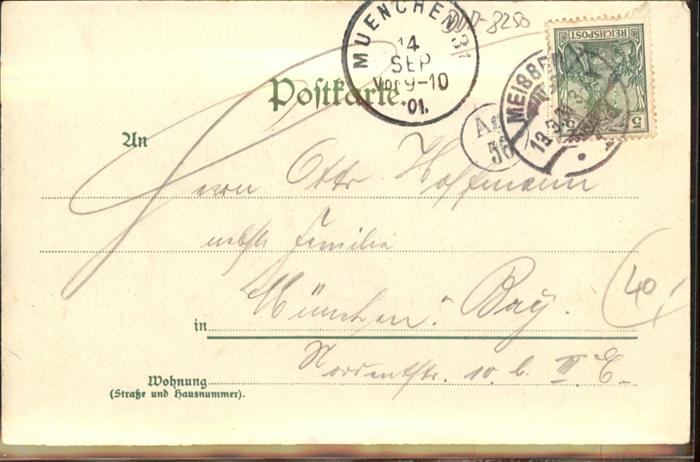 DUD-8250
MUENCHEN 31
14
SEP
Vor 9-10
01.
5
REICHSPOST
MEISSEN
13.9.01
Postkarte.
An
Herrn Otto Hoffmann
nebst Familie
in München. Bay.
10 b. III E
40
Wohnung
(Straße und Hausnummer).